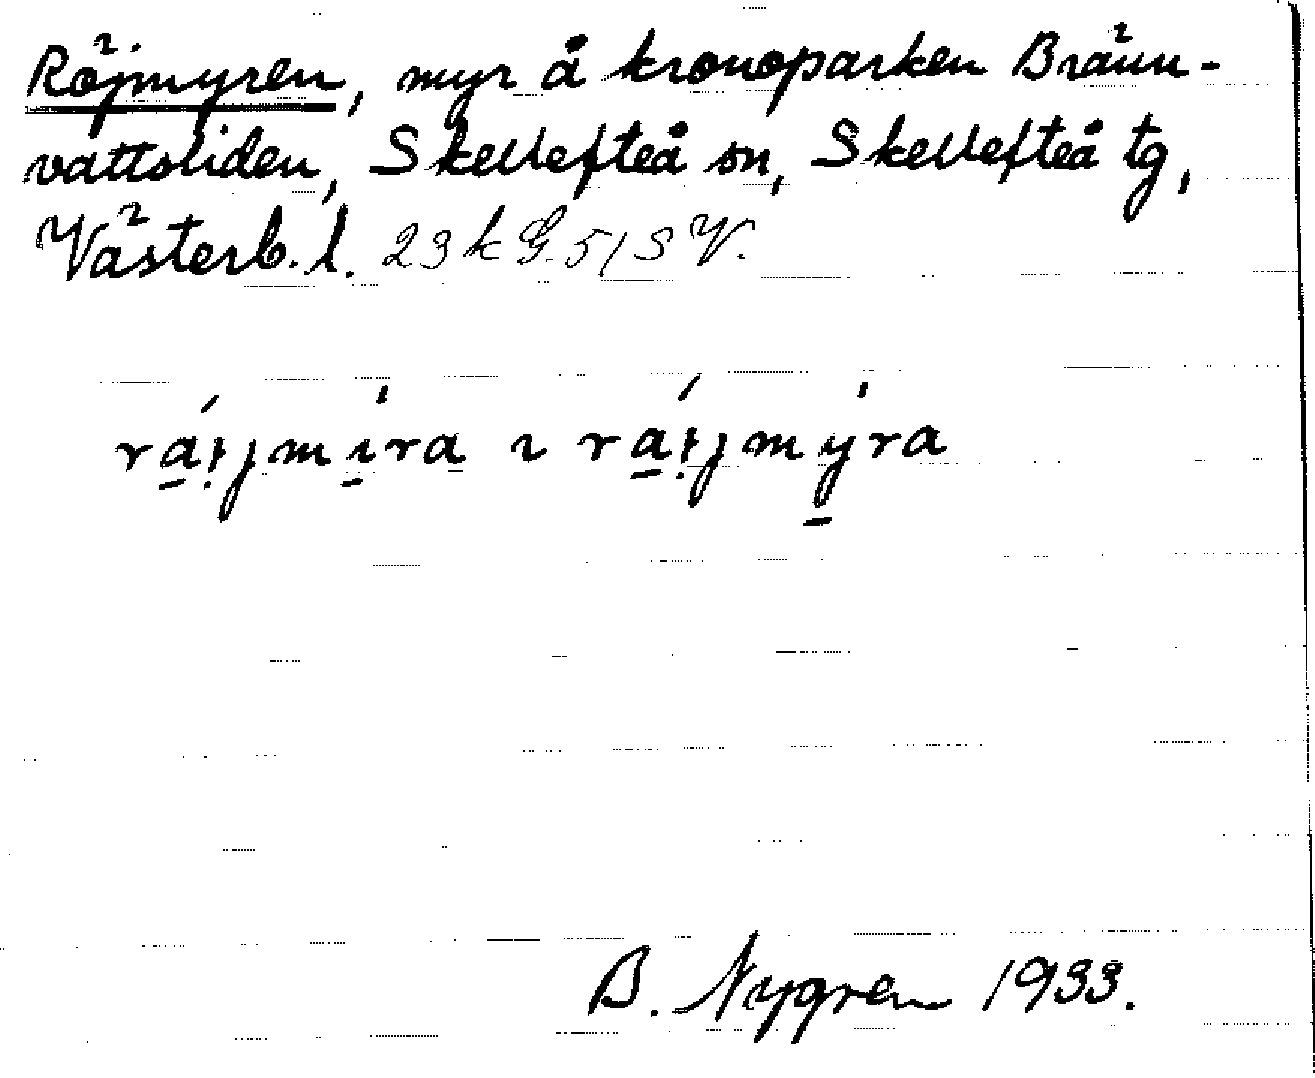 Röjmyren, myr å kronoparken Bränn-
vattsliden, Skellefteå sn, Skellefteå tg,
Västerb. l. 23 k G. 5/SV.
rá̱ı̣ȷmı̱̍ra ı rá̱ı̣ȷmy̱̍ra
B. Nygren 1933.